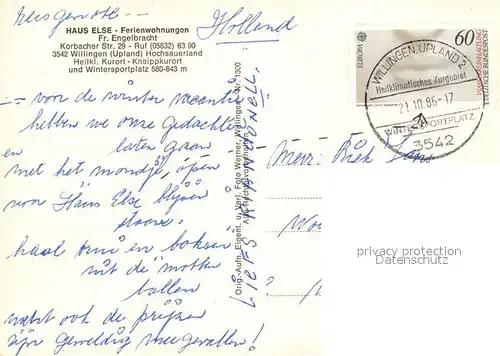 reisgenote -
Holland
HAUS ELSE - Ferienwohnungen
Fr. Engelbracht
Korbacher Str. 29 - Ruf (05632) 63 90
3542 Willingen (Upland) Hochsauerland
Heilkl. Kurort - Kneippkurort
und Wintersportplatz 580-843 m
— van de winter vacantie
hebben we onze gedachten
laten gaan
met het mondje open
voor Haus Else blijven
staan.
haal en boksen
uit de motten
ballen
want ook de prijzen
zijn geweldig mee gevallen!
Orig.-Aufn. Eigent. u. Verl. Foto Werner, Willingen
60
EUROPA
DEUTSCHE BUNDESPOST
WILLINGEN, UPLAND 2
Heilklimatisches Kurgebiet
21.10.86-17
WINTERSPORTPLATZ
3542
Mevr.
privacy protection
Datenschutz